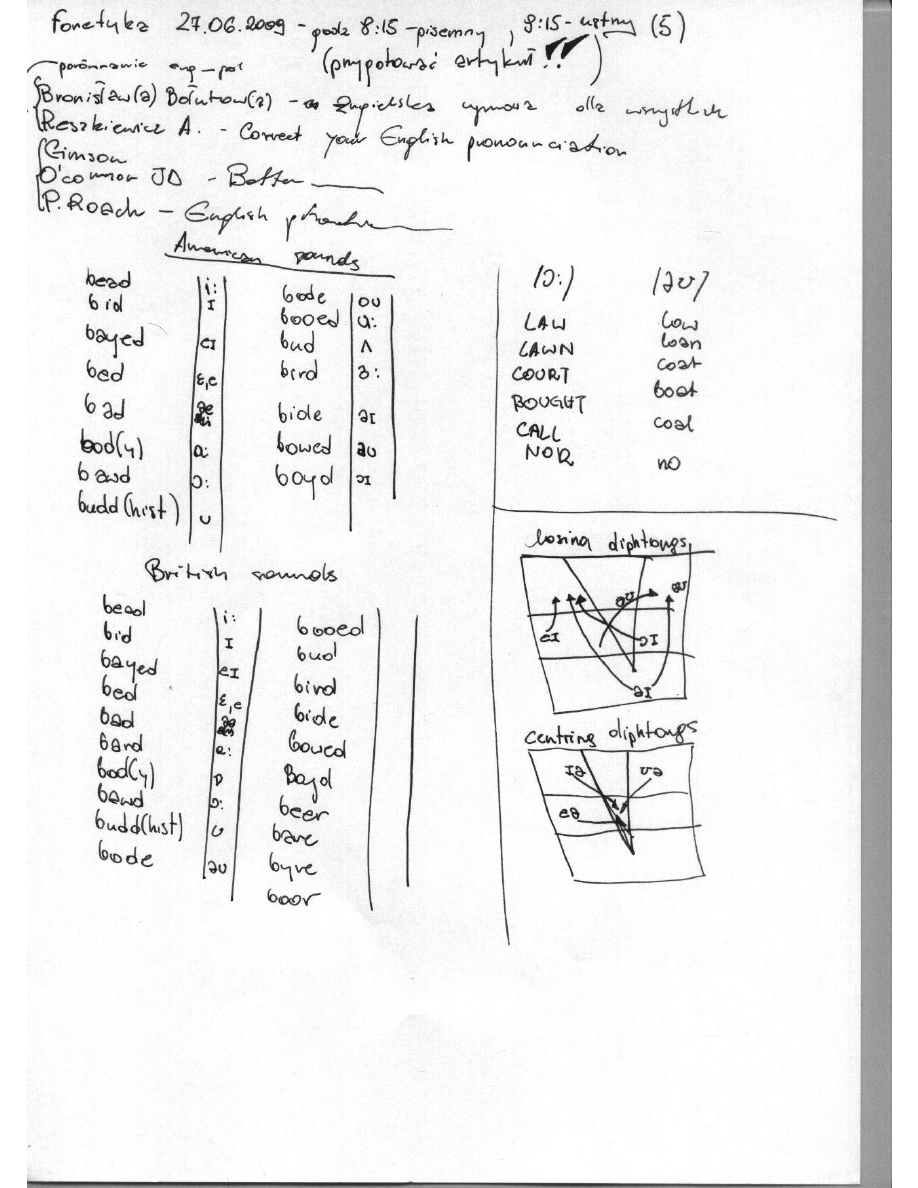 Fonetyka 27.06.2009 - godz 8:15 - pisemny , 9:15 - ustny (5)
(przygotować artykuł !!)
porównanie ang - pol
Bronisław(a) Bałutow(a) - Angielska wymowa dla wszystkich
Reszkiewicz A. - Correct your English pronounciation
Gimson
O'connor JD - Better
P. Roach - English phonetics
American sounds
bead i: bode oʊ
bid ɪ booed u:
bayed eɪ bud ʌ
bed ɛ,e bird ɜ:
bad æ bide aɪ
bod(y) ɑ: bowed aʊ
bawd ɔ: boyd ɔɪ
budd(hist) ʊ
/ɔ:/ /əʊ/
LAW low
LAWN loan
COURT coat
BOUGHT boat
CALL coal
NOR no
British sounds
bead i: booed
bid ɪ bud
bayed eɪ bird
bed ɛ,e bide
bad æ bowed
bard ɑ: Boyd
bod(y) ɒ beer
bawd ɔ: bare
budd(hist) ʊ byre
bode əʊ boor
closing diphtongs
əʊ aʊ
eɪ ɔɪ
aɪ
centring diphtongs
ɪə ʊə
eə